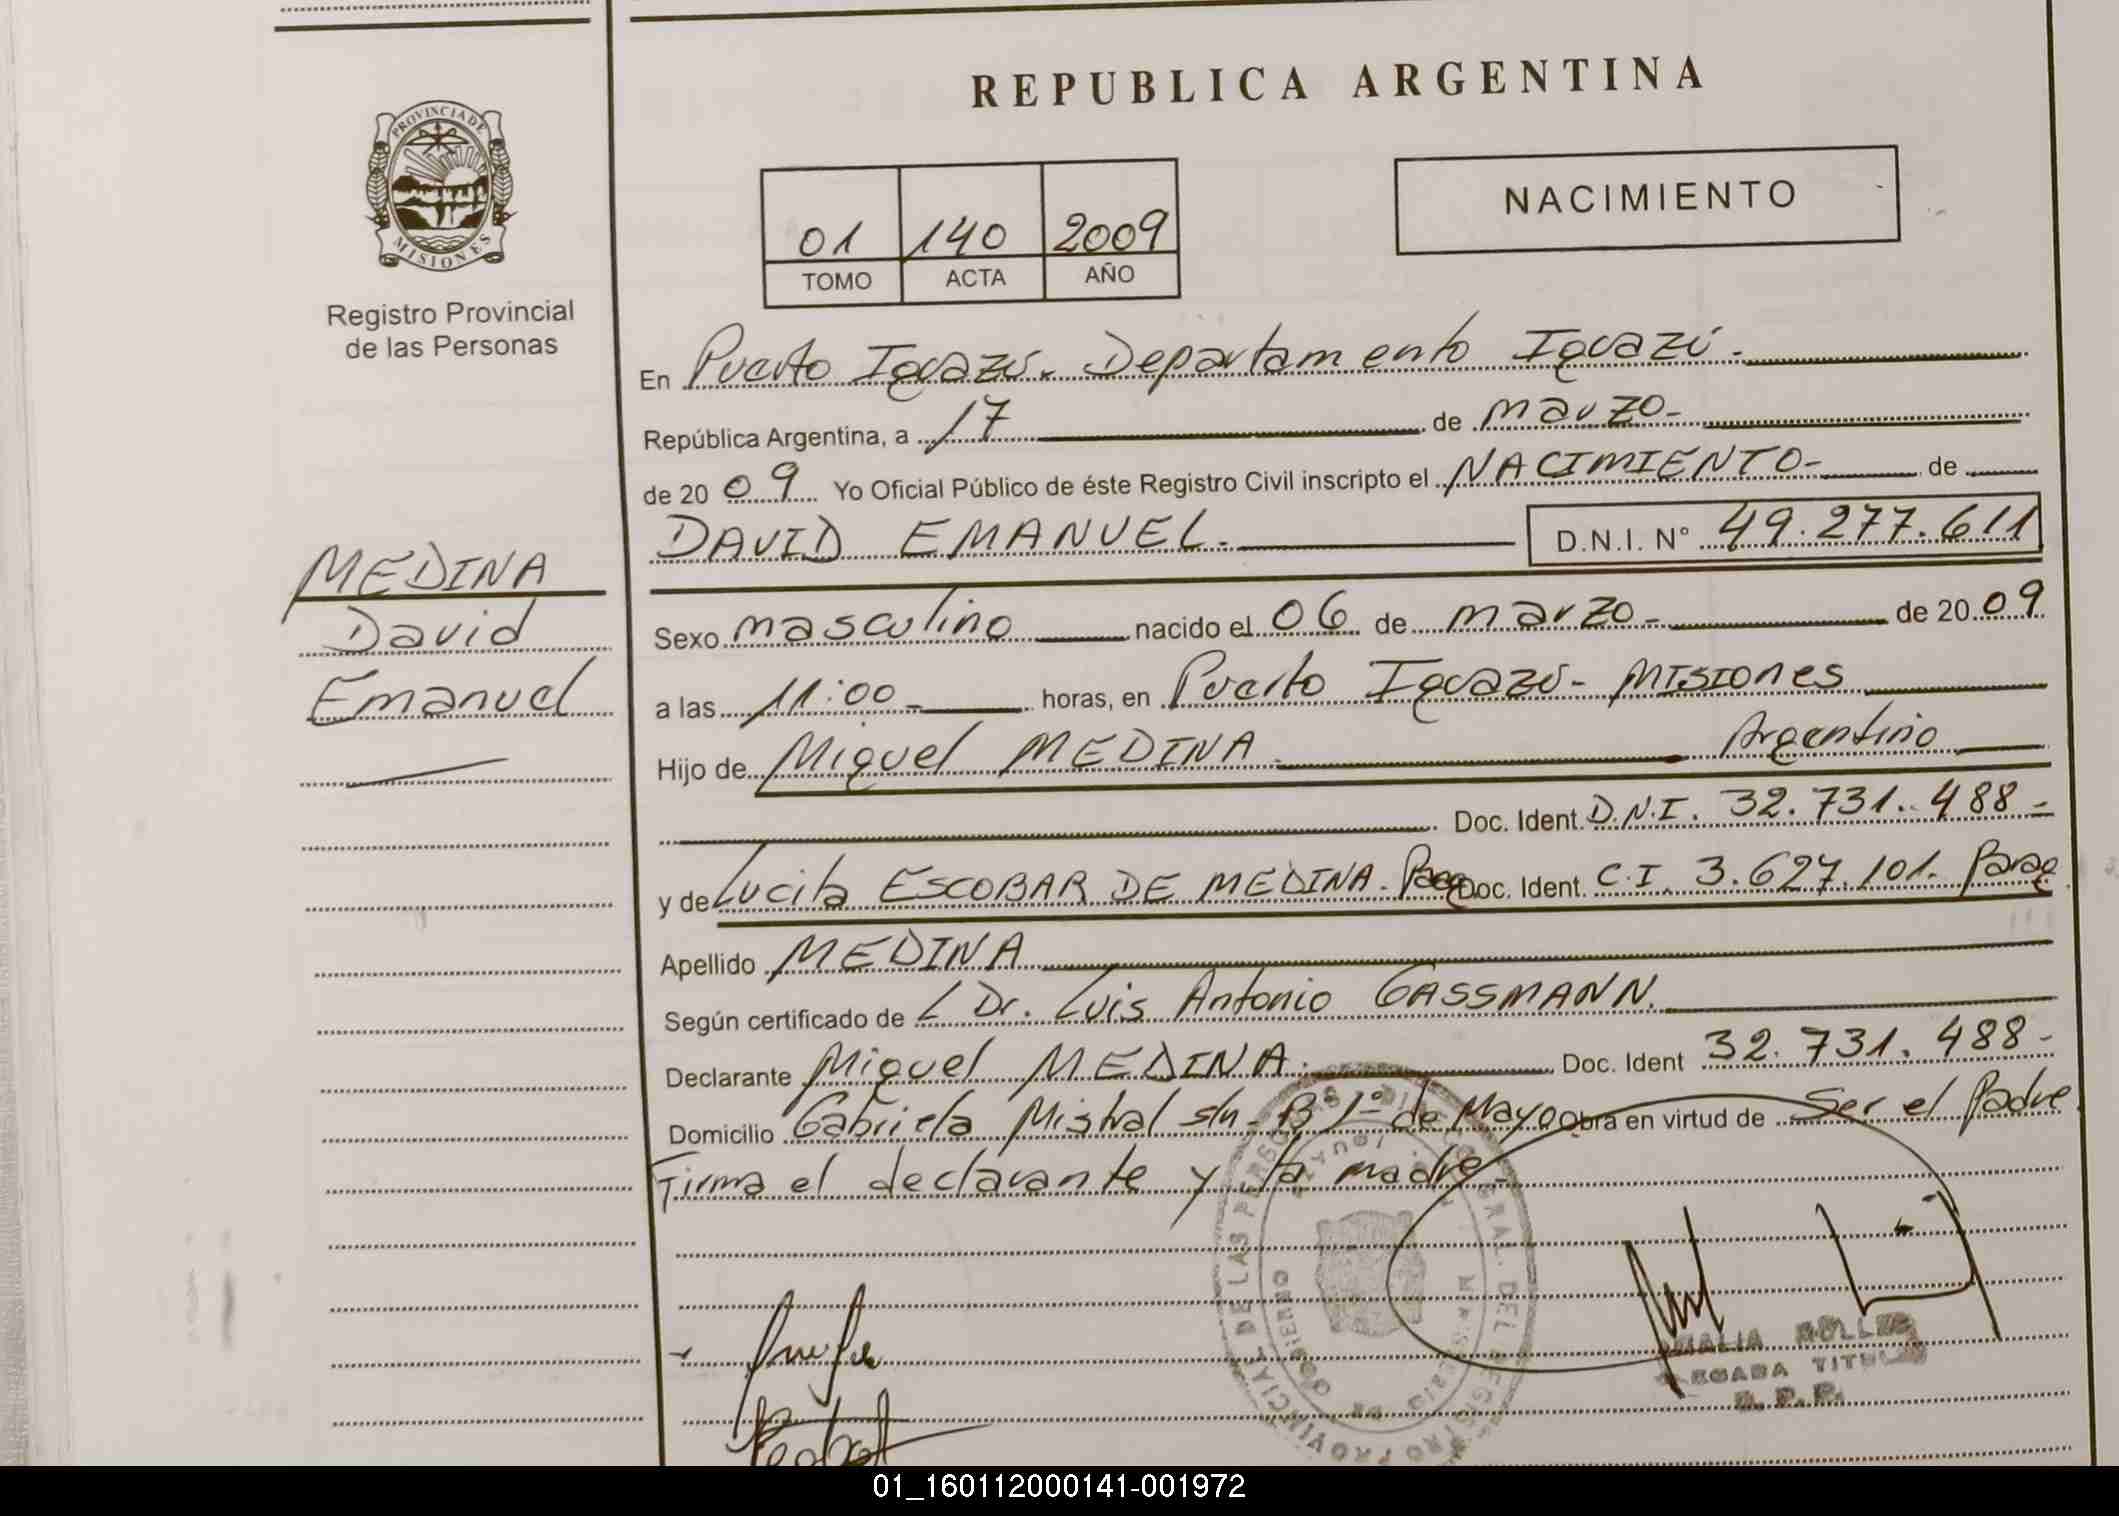 REPUBLICA ARGENTINA
PROVINCIA DE
MISIONES
Registro Provincial
de las Personas
01 140 2009
TOMO ACTA AÑO
NACIMIENTO
En Puerto Iguazú. Departamento Iguazú.
República Argentina, a 17 de marzo
de 2009 Yo Oficial Público de éste Registro Civil inscripto el NACIMIENTO de
DAVID EMANUEL. D.N.I. Nº 49.277.611
MEDINA
David
Emanuel
Sexo masculino nacido el 06 de marzo de 2009
a las 11:00 horas, en Puerto Iguazú - MISIONES
Hijo de Miguel MEDINA Argentino
Doc. Ident. D.N.I. 32.731.488
y de Lucila ESCOBAR DE MEDINA. Parag Doc. Ident. C.I. 3.627.101. Parag
Apellido MEDINA
Según certificado de L Dr. Luis Antonio GASSMANN.
Declarante Miguel MEDINA. Doc. Ident 32.731.488
Domicilio Gabriela Mistral s/n - Bº 1º de Mayo Obra en virtud de Ser el Padre
Firma el declarante y la madre
01_160112000141-001972